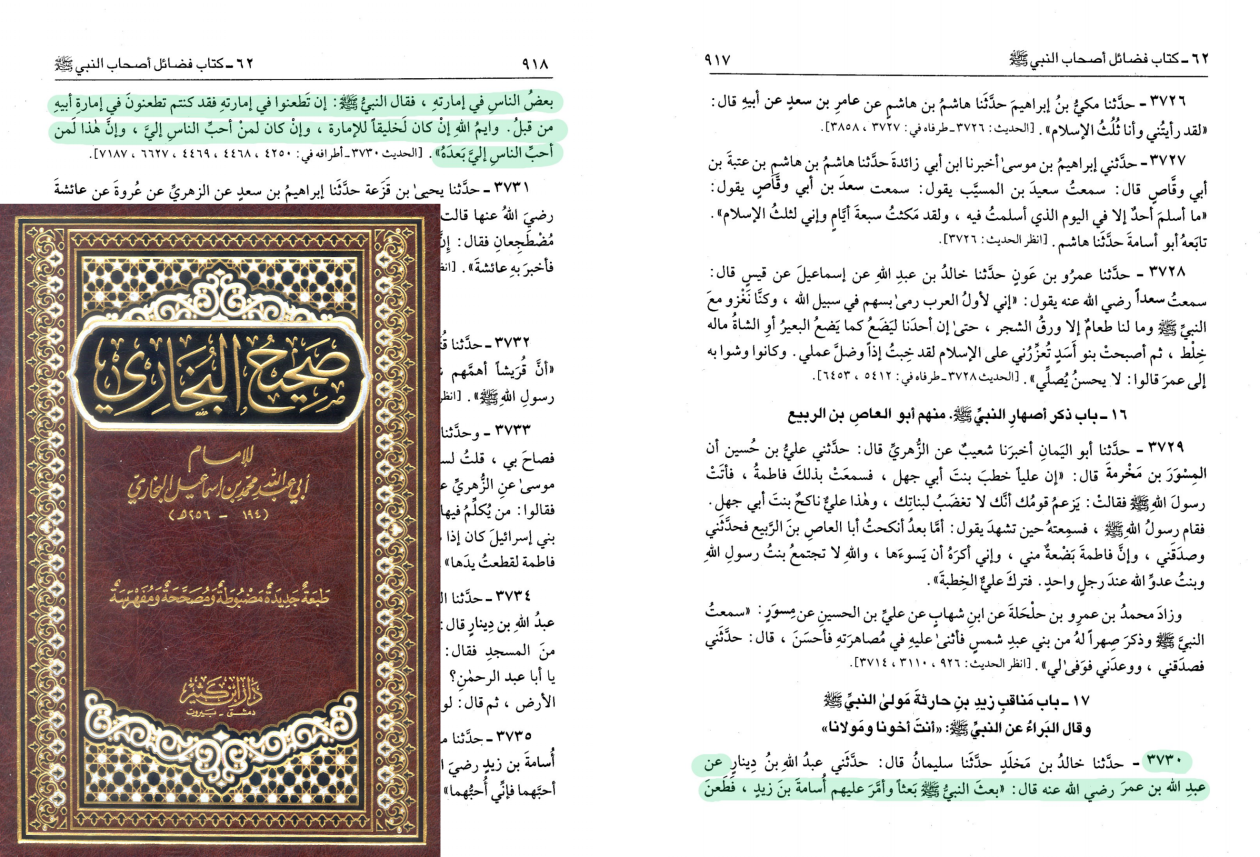 ٦٢ ـ كتاب فضائل أصحاب النبي ﷺ
٩١٧
٣٧٢٦ ـ حدَّثنا مكيُّ بنُ إبراهيمَ حدَّثنا هاشمُ بن هاشمٍ عن عامرِ بن سعدٍ عن أبيهِ قال:
«لقد رأيتُني وأنا ثُلُثُ الإسلام». [الحديث: ٣٧٢٦ـ طرفاه في: ٣٧٢٧ ، ٣٨٥٨].
٣٧٢٧ ـ حدَّثني إبراهيمُ بن موسىٰ أخبرنا ابن أبي زائدةَ حدَّثنا هاشمُ بن هاشم بن عتبةَ بن
أبي وقَّاصٍ قال: سمعتُ سعيدَ بن المسيَّب يقول: سمعت سعدَ بن أبي وقَّاصٍ يقول:
«ما أسلمَ أحدٌ إلا في اليوم الذي أسلمتُ فيه ، ولقد مَكثتُ سبعةَ أيَّامٍ وإني لثلثُ الإسلام».
تابَعهُ أبو أسامةَ حدَّثنا هاشم. [انظر الحديث: ٣٧٢٦].
٣٧٢٨ ـ حدَّثنا عمرُو بن عَونٍ حدَّثنا خالدُ بن عبدِ اللهِ عن إسماعيلَ عن قيسٍ قال:
سمعتُ سعداً رضي الله عنه يقول: «إني لأولُ العرب رمىٰ بسهم في سبيل الله ، وكنَّا نَغْزو معَ
النبيِّ ﷺ وما لنا طعامٌ إلا ورقُ الشجر ، حتىٰ إن أحدَنا ليَضَعُ كما يَضَعُ البعيرُ أوِ الشاةُ ماله
خِلْط ، ثم أصبحتْ بنو أَسَدٍ تُعزِّرُني على الإسلام لقد خِبتُ إذاً وضلَّ عملي. وكانوا وشوا به
إلى عمرَ قالوا: لا يحسنُ يُصلِّي». [الحديث ٣٧٢٨ـ طرفاه في: ٥٤١٢ ، ٦٤٥٣].
١٦ ـ باب ذكر أصهارِ النبيِّ ﷺ. منهم أبو العاصِ بن الربيع
٣٧٢٩ ـ حدَّثنا أبو اليَمانِ أخبرَنا شعيبٌ عن الزُّهريِّ قال: حدَّثني عليُّ بن حُسين أن
المِسْوَرَ بن مَخْرمةَ قال: «إن علياً خطبَ بنتَ أبي جهل ، فسمعَتْ بذلكَ فاطمةُ ، فأتَتْ
رسولَ اللهِ ﷺ فقالتْ: يَزعمُ قومُك أنَّك لا تغضَبُ لبناتِك ، وهٰذا عليٌّ ناكحٌ بنتَ أبي جهل.
فقام رسولُ اللهِ ﷺ ، فسمِعتهُ حين تشهدَ يقول: أمَّا بعدُ أنكحتُ أبا العاصِ بنَ الرَّبيع فحدَّثَني
وصدَقَني ، وإنَّ فاطمةَ بَضْعةٌ مني ، وإني أكرَهُ أن يَسوءَها ، واللهِ لا تجتمعُ بنتُ رسولِ اللهِ
وبنتُ عدوِّ الله عندَ رجلٍ واحدٍ. فتركَ عليٌّ الخِطبةَ».
وزادَ محمدُ بن عمرِو بن حلْحَلةَ عن ابنِ شهابٍ عن عليِّ بن الحسينِ عن مِسوَرٍ: «سمعتُ
النبيَّ ﷺ وذكرَ صِهراً لهُ من بني عبدِ شمسٍ فأثنىٰ عليهِ في مُصاهَرَتهِ فأحسَنَ ، قال: حدَّثَني
فصدَقَني ، ووعدَني فوَفىٰ لي». [انظر الحديث: ٩٢٦ ، ٣١١٠ ، ٣٧١٤].
١٧ ـ باب مَناقبِ زيدِ بنِ حارثةَ مَولىٰ النبيِّ ﷺ
وقال البَراءُ عنِ النبيِّ ﷺ: «أنتَ أخونا ومَولانا»
٣٧٣٠ ـ حدَّثنا خالدُ بن مَخلَدٍ حدَّثنا سليمانُ قال: حدَّثَني عبدُ اللهِ بنُ دِينارٍ عن
عبدِ الله بن عمرَ رضي الله عنه قال: «بعثَ النبيُّ ﷺ بَعثاً وأمَّرَ عليهم أُسامةَ بنَ زيدٍ ، فطَعنَ
٩١٨
٦٢ ـ كتاب فضائل أصحاب النبي ﷺ
بعضُ الناسِ في إمارتهِ ، فقال النبيُّ ﷺ: إن تَطعنوا في إمارتهِ فقد كنتم تطعنونَ في إمارةِ أبيهِ
من قبلُ. وايمُ اللهِ إن كان لَخليقاً للإمارة ، وإن كان لمنْ أحبِّ الناسِ إليَّ ، وإنَّ هٰذا لَمن
أحبِّ الناسِ إليَّ بَعدَهُ». [الحديث ٣٧٣٠ـ أطرافه في: ٤٢٥٠ ، ٤٤٦٨ ، ٤٤٦٩ ، ٦٦٢٧ ، ٧١٨٧].
٣٧٣١ ـ حدَّثنا يحيىٰ بن قَزَعة حدَّثنا إبراهيمُ بن سعدٍ عن الزهريِّ عن عُروةَ عن عائشةَ
رضيَ اللهُ عنها قالت
مُضْطجِعانِ فقال: إنَّ
فأخبرَ بهِ عائشةَ». [انظ
٣٧٣٢ ـ حدَّثنا
«أنَّ قُرَيشاً أهمَّهم
رسولِ اللهِ ﷺ». [انظر
٣٧٣٣ ـ وحدَّثنا
فصاحَ بي ، قلتُ لس
موسىٰ عنِ الزُّهريِّ ع
فقالوا: من يُكلِّمُ فيها
بني إسرائيلَ كان إذا
فاطمة لقطعتُ يدَها»
٣٧٣٤ ـ حدَّثنا ال
عبدُ اللهِ بن دِينارٍ قال:
منَ المسجدِ فقال:
يا أبا عبد الرحمٰنِ؟
الأرض ، ثم قال: لو
٣٧٣٥ ـ حدَّثنا م
أُسامةَ بن زيدٍ رضيَ ا
أحبَّهما فإنِّي أُحبُّهما»
صَحِيحُ البُخَارِي
للإمام
أبي عبد الله محمد بن إسماعيل البخاري
(١٩٤ - ٢٥٦ هـ)
طَبعَةٌ جَدِيدَةٌ مَضْبُوطَةٌ وَمُصَحَّحَةٌ وَمُفَهْرَسَةٌ
دَار ابن كثير
دمشق - بيروت